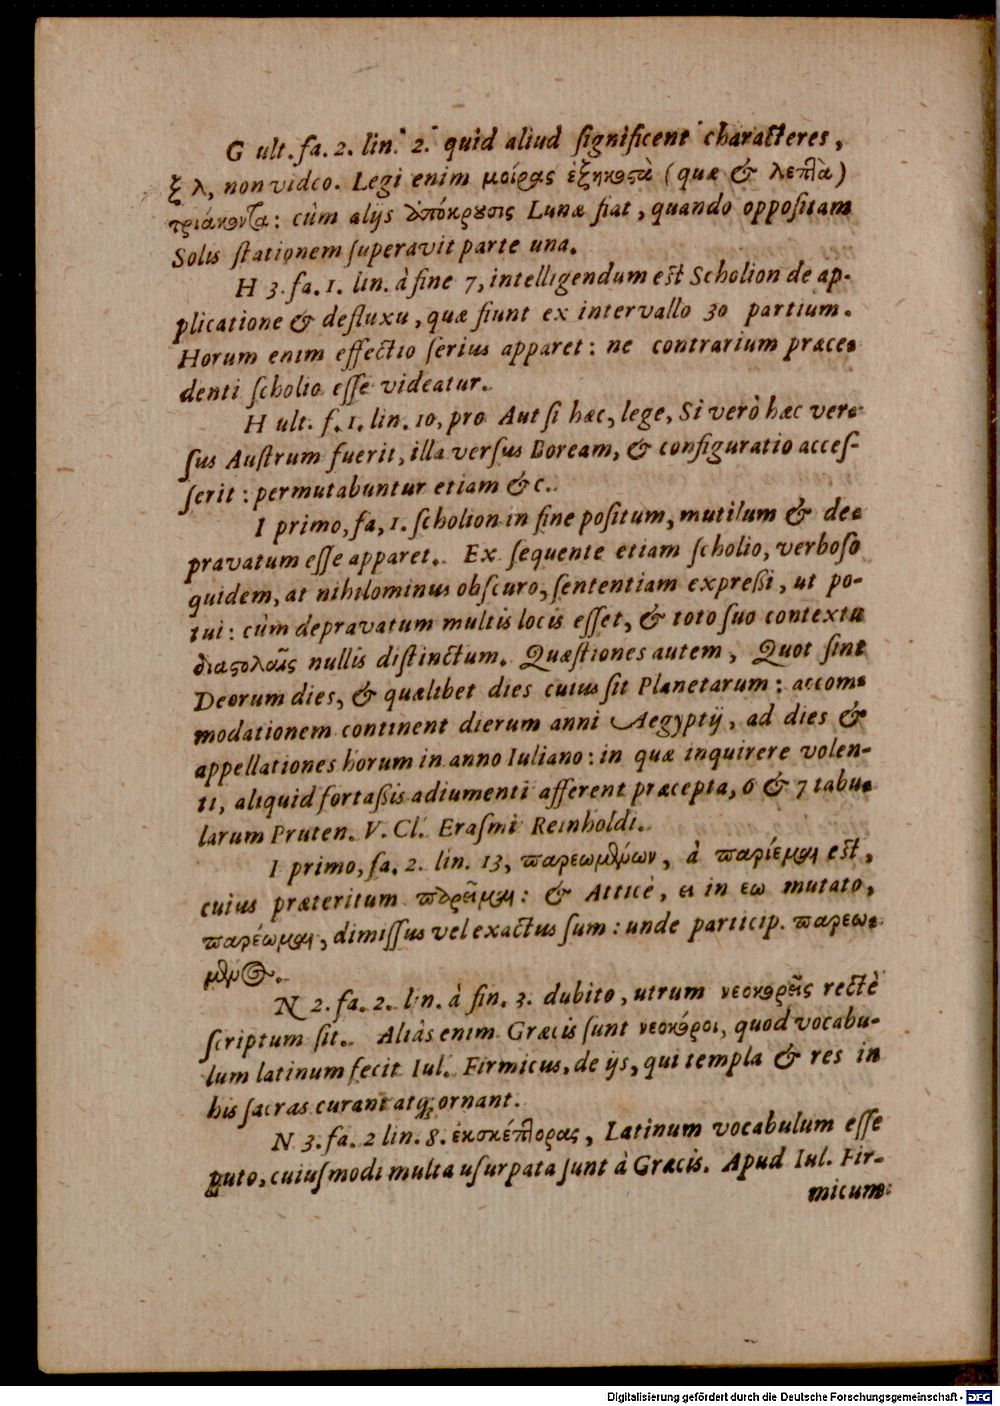 G ult. fa. 2. lin. 2. quid aliud ſignificent characteres,
ξ λ, non video. Legi enim μοίρας ἑξηκοστὰ (quæ & λεπτὰ)
τριάκοντα: cùm alijs ἀπόκρουσις Lunæ fiat, quando oppoſitam
Solis ſtationem ſuperavit parte una.
H 3. fa. 1. lin. à fine 7, intelligendum eſt Scholion de ap-
plicatione & defluxu, quæ fiunt ex intervallo 30 partium.
Horum enim effectio ſerius apparet: ne contrarium præce-
denti ſcholio eſſe videatur.
H ult. f. 1. lin. 10, pro Aut ſi hæc, lege, Si verò hæc ver-
ſus Auſtrum fuerit, illa verſus Boream, & configuratio acceſ-
ſerit: permutabuntur etiam &c.
I primo, fa, 1. ſcholion in fine poſitum, mutilum & de-
pravatum eſſe apparet. Ex ſequente etiam ſcholio, verboſo
quidem, at nihilominus obſcuro, ſententiam expreßi, ut po-
tui: cùm depravatum multis locis eſſet, & toto ſuo contextu
διαστολαῖς nullis diſtinctum. Quæſtiones autem, Quot ſint
Deorum dies, & quælibet dies cuius ſit Planetarum: accom-
modationem continent dierum anni Aegyptij, ad dies &
appellationes horum in anno Iuliano: in quæ inquirere volen-
ti, aliquid fortaßis adiumenti afferent præcepta, 6 & 7 tabu-
larum Pruten. V. Cl. Eraſmi Reinholdi.
I primo, fa. 2. lin. 13, παρεωμένων, à παρίεμαι eſt,
cuius præteritum παρεῖμαι: & Atticè, ει in εω mutato,
παρέωμαι, dimiſſus vel exactus ſum: unde particip. παρεω-
μένος.
N 2. fa. 2. lin. à fin. 3. dubito, utrum νεοκορεῖς rectè
ſcriptum ſit. Aliàs enim Græcis ſunt νεοκόροι, quod vocabu-
lum latinum fecit Iul. Firmicus, de ijs, qui templa & res in
his ſacras curant atq; ornant.
N 3. fa. 2 lin. 8. ἐκσκέπτορας, Latinum vocabulum eſſe
puto, cuiuſmodi multa uſurpata ſunt à Græcis. Apud Iul. Fir-
micum
Digitalisierung gefördert durch die Deutsche Forschungsgemeinschaft - DFG